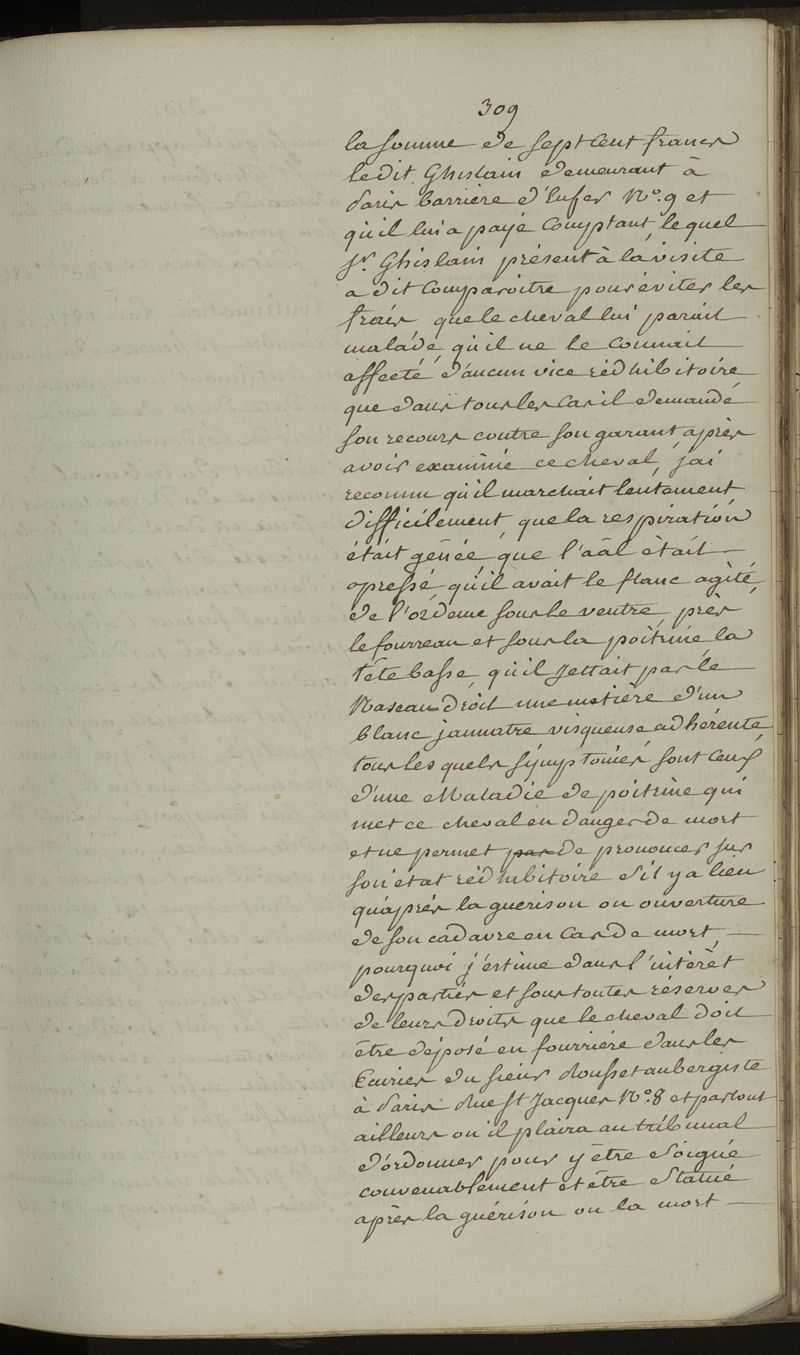 309
la somme de sept Cent francs
le dit Ghislain demeurant à
Paris barrière d'Enfer N°. 9 et
qu'il lui a payé Comptant, lequel
Sr. Ghislain présent à la visite
a dit Comparoitre pour éviter les
frais, que le cheval lui parait
malade, qu'il ne le Connait
affecté d'aucun vice rédhibitoire
que dans tous les Cas il demande
son recours contre son garant après
avoir examiné ce cheval, j'ai
reconnu qu'il marchait lentement,
difficilement, que la respiration
était gênée, que l'aâl était —
opressé, qu'il avait le flanc agité,
de l'oédeme sous le ventre, près
le fourreau et sous la poitrine, la
tête basse, qu'il Jettait par le
Naseau droit une matière d'un
blanc jaunatre visqueuse, adhérente,
tous les quels symptomes sont Ceux
d'une Maladie de poitrine qui
met ce cheval en danger de mort
et ne permet pas de prononcer sur
son état rédhibitoire s'il y a lieu
qu'après la guerison ou ouverture
de son cadavre en Cas de mort, —
pourquoi j'estime dans l'intérêt
des parties et sous toutes réserves
de leurs droits que le cheval doit
être déposé en fourrière dans les
Ecuries du sieur Rousset aubergiste
à Paris Rue St Jacques N°. 8 et partout
ailleurs ou il plaira au tribunal
d'ordonner pour y être soigné
convenablement et être Statué
après la guérison ou la mort —